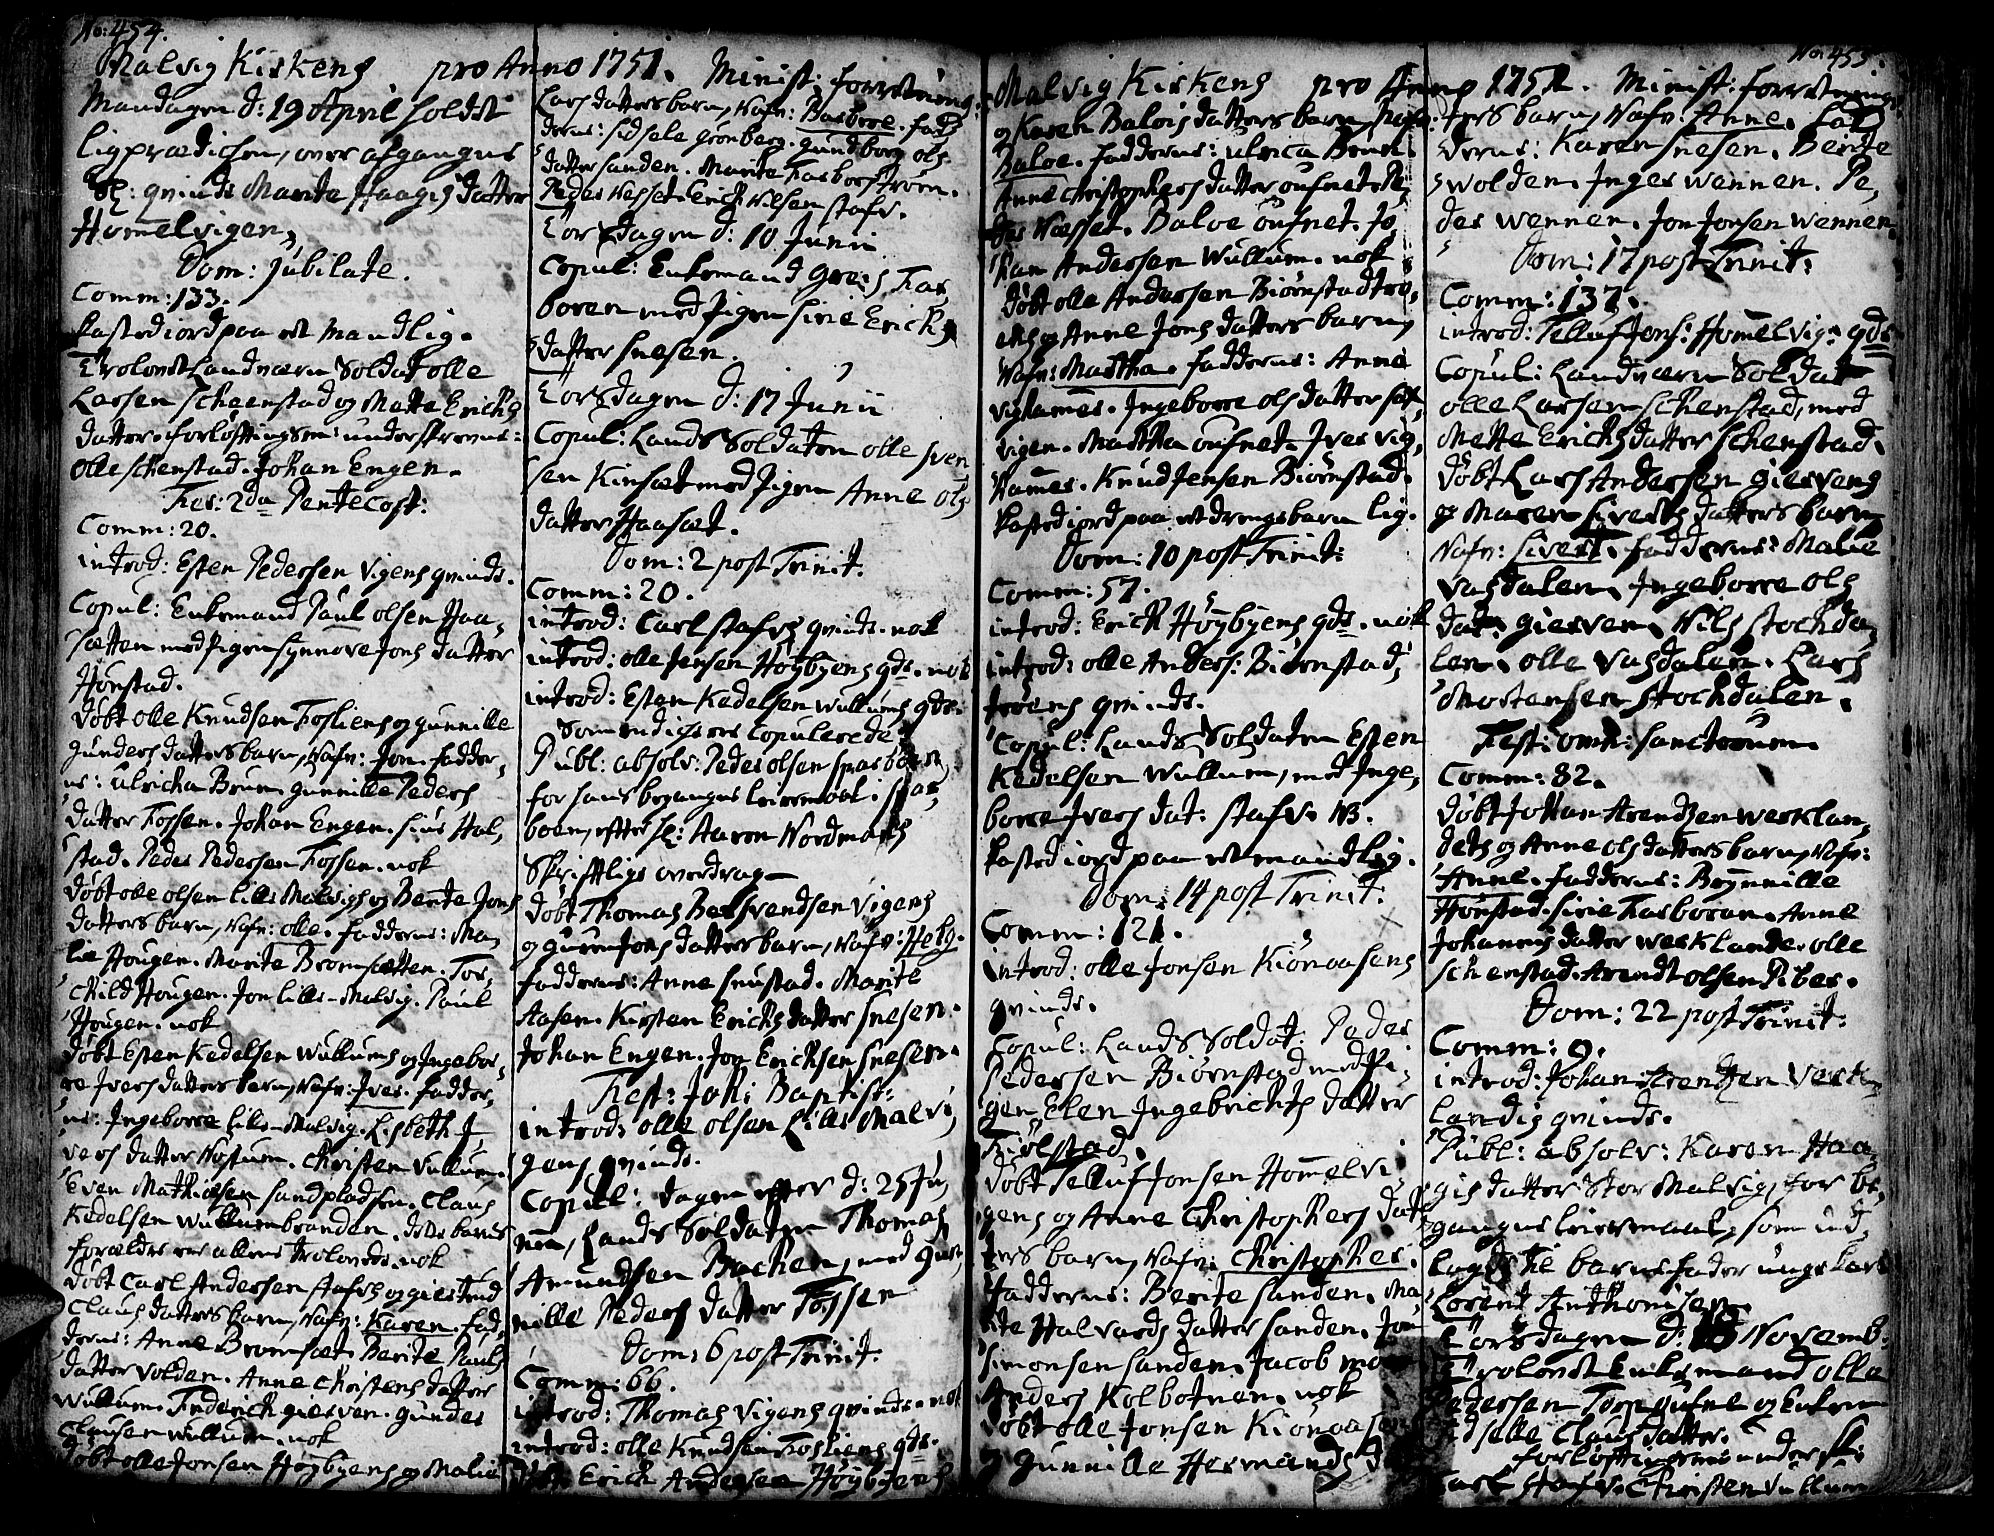 No: 454.
Malvig Kirkens pro Anno 1751. Minist: forretning:
Mandagen d: 19 April holdt
ligprædichen, over afgangne
Sl: qvinde Marite Haagis datter
Hommelvigen,
Dom: Jubilate.
Comm: 133.
kasted iord paa et mandlig.
Trolovet Landværn Soldat olle
Larsen Schenstad og Mette Erichs
datter. forløftingsm: underskrevne:
olle schenstad. Johan Engen.
Fer: 2da Pentecost:
Comm: 20.
introd: Esten Pedersen Vigens qvinde.
Copul: Enkemand Paul olsen Haa,
sætten med Pigen Synnove Jons datter
Hønstad.
døbt olle Knudsen Fosliens og gunnille
gunders datters barn, Nafn: Jon. fadder,
ne: ulricha Bruun. gunnille Peders
datter Fossen. Johan Engen. Siur Hal,
stad. Peder Pedersen Fossen. nok
døbt olle olsen lille Malvigs og Berite Jons
datters barn, Nafn: olle. fadderne: Ma,
lie Hougen. Marite Bromsætten. Tor,
child Hougen. Jon lille-Malvig. Paul
Hougen. nok
døbt Esten Kedelsen Wullums og Ingebor,
re Ivers datters barn, Nafn: Iver. fadder,
ne: Ingeborre lille-Malvig. Lisbeth I,
vers datter Nøstum. Christen Vullum.
Even Mathiesen sandpladsen. Claus
Kedelsen Wullumbranden. dette barns
forældre ere allene trolovede. nok
døbt Carl Andersen stafs og giertrud
Claus datters barn, Nafn: Karen. fad,
derne: Anne Bromsæt. Berite Pauls
datter volden. Anne Christens datter
Wullum. Frederich gieseven. gunder
Clausen Wullum. nok
døbt olle Jonsen Høybyens og Malie
Lars datters barn, Nafn: Barbroe. fad,
derne: sidsele grønberg. gundborg ols
datter sanden. Marite Farborstrøm.
Peder Næsset. Erich Nilsen stafv.
Torsdagen d: 10 Junii
Copul: Enkemand greis Far,
boren med Pigen sirie Erichs
datter snesen.
Torsdagen d: 17 Junii
Copul: Lands Soldaten olle sven
sen Kinsæt med Pigen Anne ols
datter Haasæt.
Dom: 2 post Trinit.
Comm: 20.
introd: Carl stafvs qvinde. nok
introd: olle Jensen Høybyens qde. nok
introd: Esten Kedelsen Wullums qde.
Publ: absolv: Peder olsen
for hans begangne leiermaal i
boen, efter Sl: Aaron Nordmans
Skriftlige overdrag
døbt Thomas Bersvendsen Vigens
og guren Jons datters barn, Nafn: Helg.
fadderne: Anne snustad. Marite
Aasen. Kirsten Erichs datter snesen.
Johan Engen. Jon Erichsen snesen.
Fest: Joh: Baptist:
introd: olle olsen Lille Malvi,
gens qvinde.
Copul: dagen efter d: 25 Ju,
nii, Lands Soldaten Thomas
Amundsen Bachen, med gun,
nille Peders datter Fossen
Dom: 6 post Trinit.
Comm: 66.
introd: Thomas Vigens qvinde. nok
introd: olle Knudsen Fosliens qde.
døbt Erich Andersen Høybyens
No: 455.
Malvig Kirkens pro Anno 1751. Minist: forretning:
og Karen Balois datters barn, Nafn:
Baloe. fadderne: ulrica Bruun.
Anne Christophers datter oufnet. Pe,
der Næsset. Baloe oufnet. Jo,
han Andersen Wullum. nok
døbt olle Andersen Biørnstadtrø,
ens og Anne Jons datters barn,
Nafn: Martha. fadderne: Anne
vighammer. Ingeborre ols datter sax,
vigen. Martha oufnet. Iver vig,
hammer. Knud Jensen Biørnstad.
kasted iord paa et drengebarn lig.
Dom: 10 post Trinit:
Comm: 57.
introd: Erich Høybyens qde. nok
introd: olle Anders: Biørnstad,
trøens qvinde.
Copul: Lands Soldaten Esten
Kedelsen Wullum, med Inge,
borre Ivers dat: stafv. NB.
kasted iord paa et mandlig.
Dom: 14 post Trinit:
Comm: 121.
introd: olle Jonsen Kiønaasens
qvinde.
Copul: Lands Soldat: Peder
Pedersen Biørnstad med Pi,
gen Elen Ingebrichts datter
Fiølstad.
døbt Telluf Jonsen Hommelvi,
gens og Anne Christophers dat
ters barn, Nafn: Christopher.
fadderne: Berite sanden. Ma,
rite Halvards datter sanden. Jon
Simonsen sanden. Jacob
Anders Kolbotnen. nok
døbt olle Jonsen Kiønaasens
og gunnille Hermands
ters barn, Nafn: Anne. fad
derne: Karen snesen. Berite
wolden. Inger wennen. Pe,
der wennen. Jon Jonsen wennen.
Dom: 17 post Trinit:
Comm: 137.
introd: Telluf Jons: Hommelvig: qde
Copul: Landværn Soldat
olle Larsen schenstad, med
Mette Erichs datter schenstad.
døbt Lars Andersen giervens
og Maren siverts datters barn
Nafn: sivert. fadderne: Malie
vasdalen. Ingeborre ols
dat: gierven. Nils stochda,
len. olle vasdalen. Lars
Mortensen stochdalen.
Fest: omn: sanctorum.
Comm: 82.
døbt Johan Arendtzen wersklan,
dets og Anne ols datters barn, Nafn:
Anne. fadderne: Brynnille
Hønstad. sirie Farboren. Anne
Johannis datter wersklandet. olle
schenstad. Arendt olsen Piber.
Dom: 22 post Trinit:
Comm: 9.
introd: Johan Arendtzen versk,
landis qvinde.
Publ: absolv: Karen Haa,
gis datter Stor Malvig, for be,
gangne leiermaal, som ud
lagde til barne fader unge karl
Lorentz Anthonisen.
Torsdagen d: 18 Novemb:
Trolovet Enkemand olle
Pedersen Torp og Enken
sidselle Claus datter.
forløftingsm: underskr:
Carl stafv. Christen Vullum